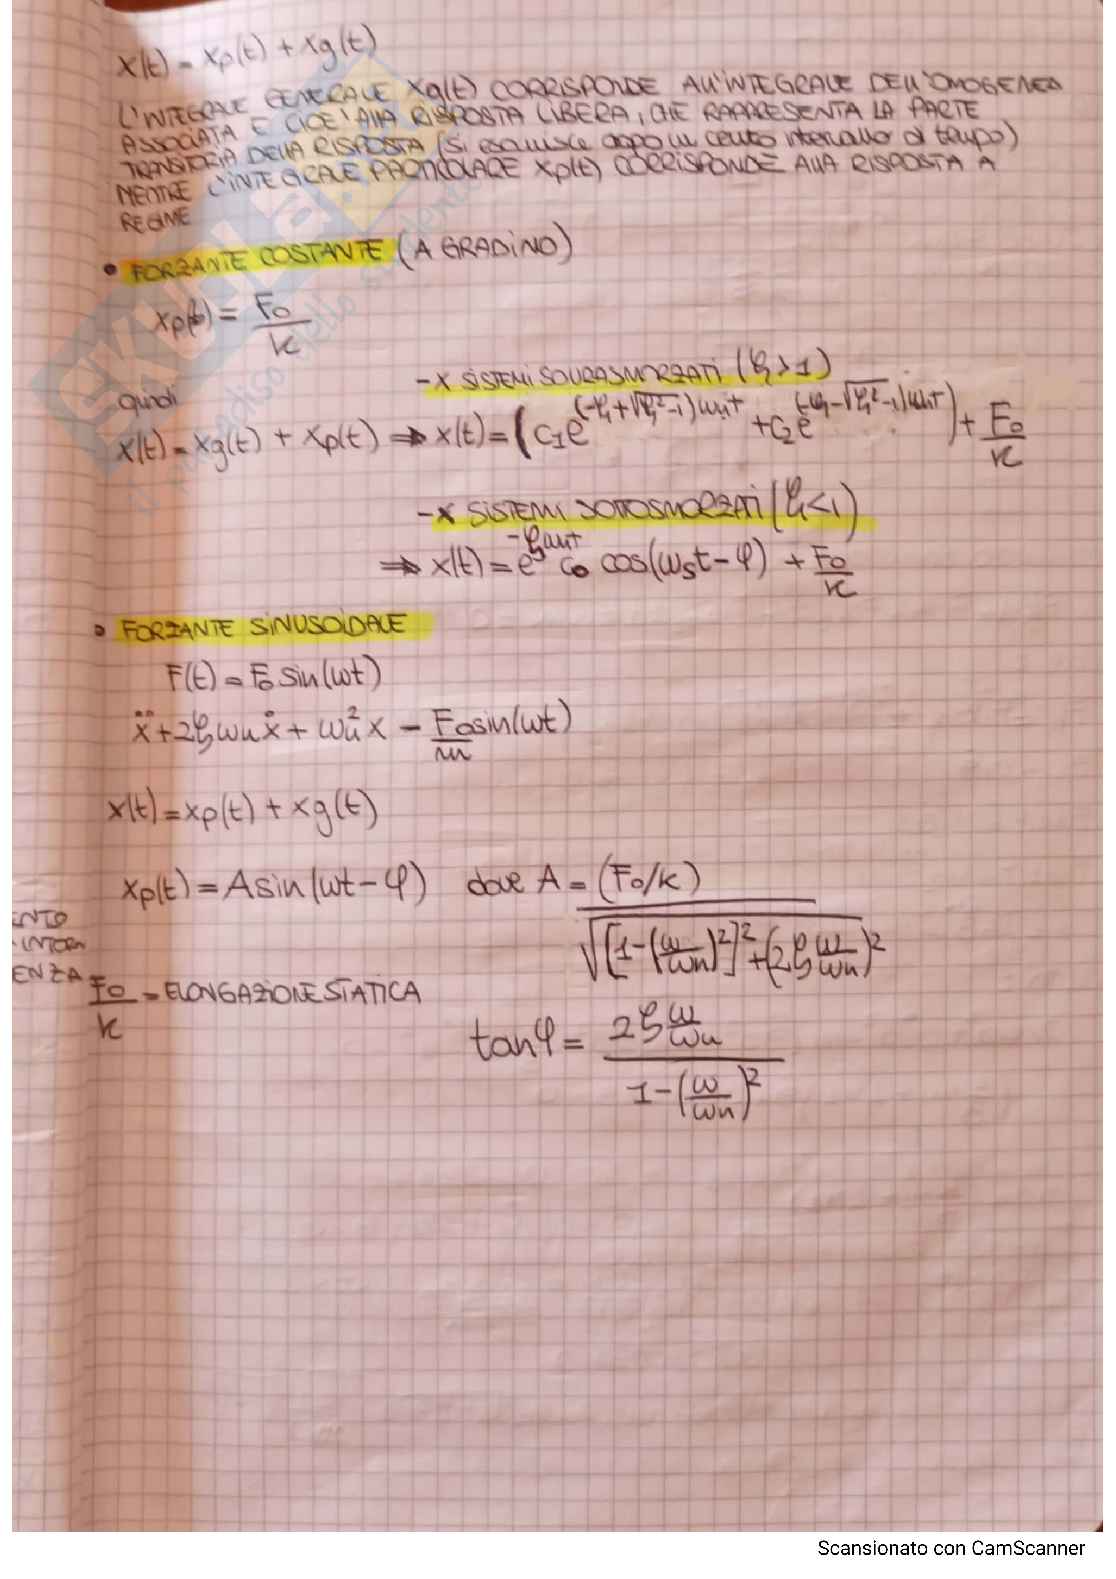 x(t) = xp(t) + xg(t)
L'INTEGRALE GENERALE xg(t) CORRISPONDE ALL'INTEGRALE DELL'OMOGENEA
ASSOCIATA E CIOE' ALLA RISPOSTA LIBERA, CHE RAPPRESENTA LA PARTE
TRANSITORIA DELLA RISPOSTA (si esaurisce dopo un certo intervallo di tempo)
MENTRE L'INTEGRALE PARTICOLARE xp(t) CORRISPONDE ALLA RISPOSTA A
REGIME
• FORZANTE COSTANTE (A GRADINO)
xp(t) = F0/k
- x SISTEMI SOVRASMORZATI (ξ > 1)
quindi
x(t) = xg(t) + xp(t) ⇒ x(t) = (c1e^(-ξ+√ξ²-1)ωnt + c2e^(-ξ-√ξ²-1)ωnt) + F0/k
- x SISTEMI SOTTOSMORZATI (ξ<1)
⇒ x(t) = e^-ξωnt c0 cos(ωst - φ) + F0/k
• FORZANTE SINUSOIDALE
F(t) = F0 sin(ωt)
ẍ + 2ξωnẋ + ωn²x = F0/m sin(ωt)
x(t) = xp(t) + xg(t)
xp(t) = A sin(ωt - φ) dove A = (F0/k) / √[1-(ω/ωn)²]² + (2ξ ω/ωn)²
ENTO
INTORN
ENZA
F0/k = ELONGAZIONE STATICA
tanφ = 2ξ ω/ωn / 1-(ω/ωn)²
Scansionato con CamScanner